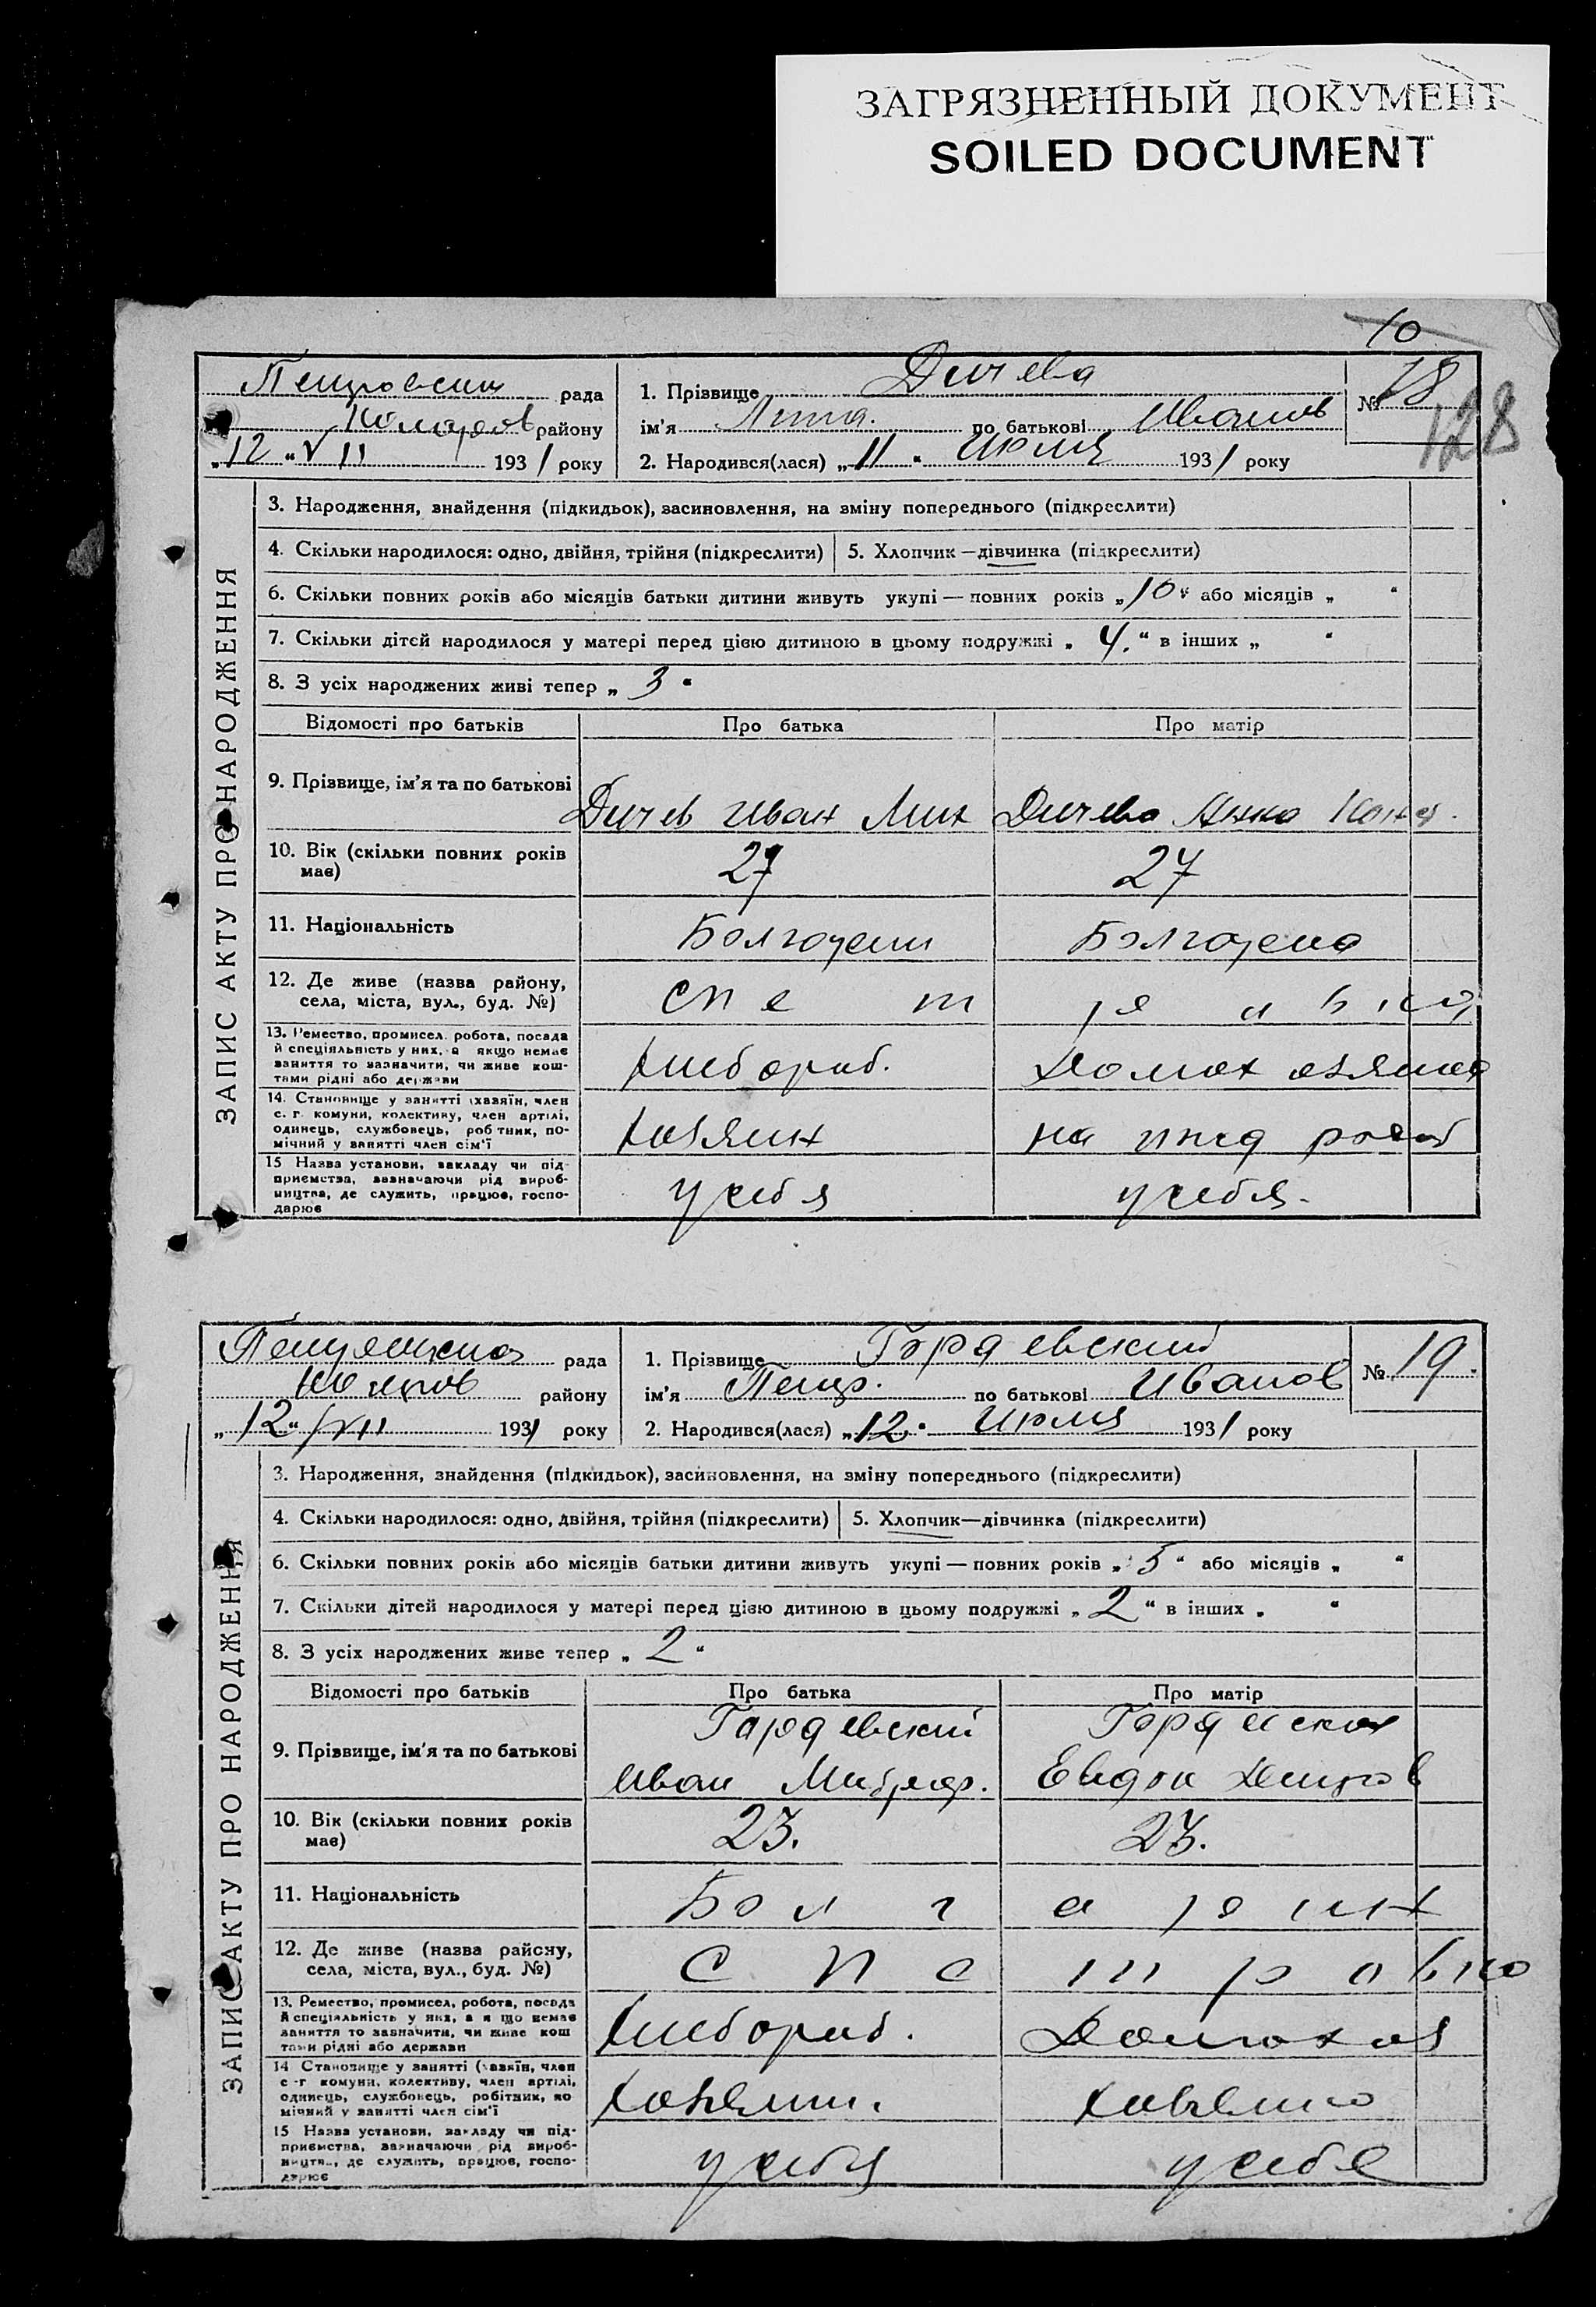 ЗАГРЯЗНЕННЫЙ ДОКУМЕНТ
SOILED DOCUMENT
10
рада
району
„12“ VII 1931 року
1. Прізвище Дичева
ім'я по батькові Иванов
2. Народився(лася) „11“ Июля 1931 року
№ 18
128
ЗАПИС АКТУ ПРО НАРОДЖЕННЯ
3. Народження, знайдення (підкидьок), засиновлення, на зміну попереднього (підкреслити)
4. Скільки народилося: одно, двійня, трійня (підкреслити)
5. Хлопчик—дівчинка (підкреслити)
6. Скільки повних років або місяців батьки дитини живуть укупі — повних років „10“ або місяців „ “
7. Скільки дітей народилося у матері перед цією дитиною в цьому подружжі „4.“ в інших „ “
8. З усіх народжених живі тепер „3“
Відомості про батьків Про батька Про матір
9. Прізвище, ім'я та по батькові
Дичев Иван Мих Дичева Анна
10. Вік (скільки повних років має) 27 27
11. Національність Болгарин Болгарка
12. Де живе (назва району, села, міста, вул., буд. №)
13. Ремество, промисел, робота, посада й спеціяльність у них, а якщо немає заняття то зазначити, чи живе коштами рідні або держави
Хлебораб. Домохозяйка
14. Становище у занятті (хазяїн, член с.-г. комуни, колективу, член артілі, одинець, службовець, робітник, помічний у занятті член сім'ї
Хозяин на
15 Назва установи, закладу чи підприємства, зазначаючи рід виробництва, де служить, працює, господарює
у себя у себя.
рада
району
„12“ VII 1931 року
1. Прізвище Гардевский
ім'я Петр. по батькові Иванов
2. Народився(лася) „12“ Июля 1931 року
№ 19.
ЗАПИС АКТУ ПРО НАРОДЖЕННЯ
3. Народження, знайдення (підкидьок), засиновлення, на зміну попереднього (підкреслити)
4. Скільки народилося: одно, двійня, трійня (підкреслити)
5. Хлопчик—дівчинка (підкреслити)
6. Скільки повних років або місяців батьки дитини живуть укупі — повних років „5“ або місяців „ “
7. Скільки дітей народилося у матері перед цією дитиною в цьому подружжі „2“ в інших „ “
8. З усіх народжених живе тепер „2“
Відомості про батьків Про батька Про матір
Гардевский
9. Прізвище, ім'я та по батькові
Иван
10. Вік (скільки повних років має) 23. 23.
11. Національність Болгарин
12. Де живе (назва району, села, міста, вул., буд. №)
13. Ремество, промисел, робота, посада й спеціяльність у них, а якщо немає заняття то зазначити, чи живе коштами рідні або держави
Хлебораб. Домохоз
14 Становище у занятті (хазяїн, член с.-г. комуни, колективу, член артілі, одинець, службовець, робітник, помічний у занятті член сім'ї
Хозяин.
15 Назва установи, закладу чи підприємства, зазначаючи рід виробництва, де служить, працює, господарює
у себя у себе